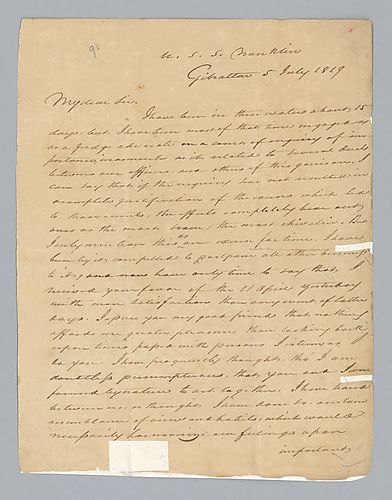 91
U. S. S. Franklin
Gibraltar 5 July 1819
My dear Sir.
I have been in these waters about 15
days but I have been most of that time engaged as
as a Judge advocate on a court of inquiry of im
portance, inasmuch as it related to several duels
between our officers and others of this garrison. I
can say that if the inquiry has not resulted in
a complete justification of the course which led
to these
ours as the most brave, the most
I only mention this as our
to postpone all other
to it, and now have only time to say that I
received your favor of the 21 April yesterday
with more satisfaction than any event of latter
days. I assure you my good friend that nothing
affords me greater pleasure than looking back
upon times passed with persons I esteem as I
do you. I have frequently thought, tho I am
doubtless presumptuous, that you and I were
formed by nature to act together. I have
between us a
resemblance of views and habits, which would
necessarily harmonize our feelings upon
important